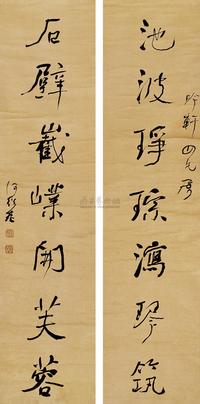 吟軒四兄屬
池波琤琮瀉琴筑
石壁巀嶫開芙蓉
何紹基